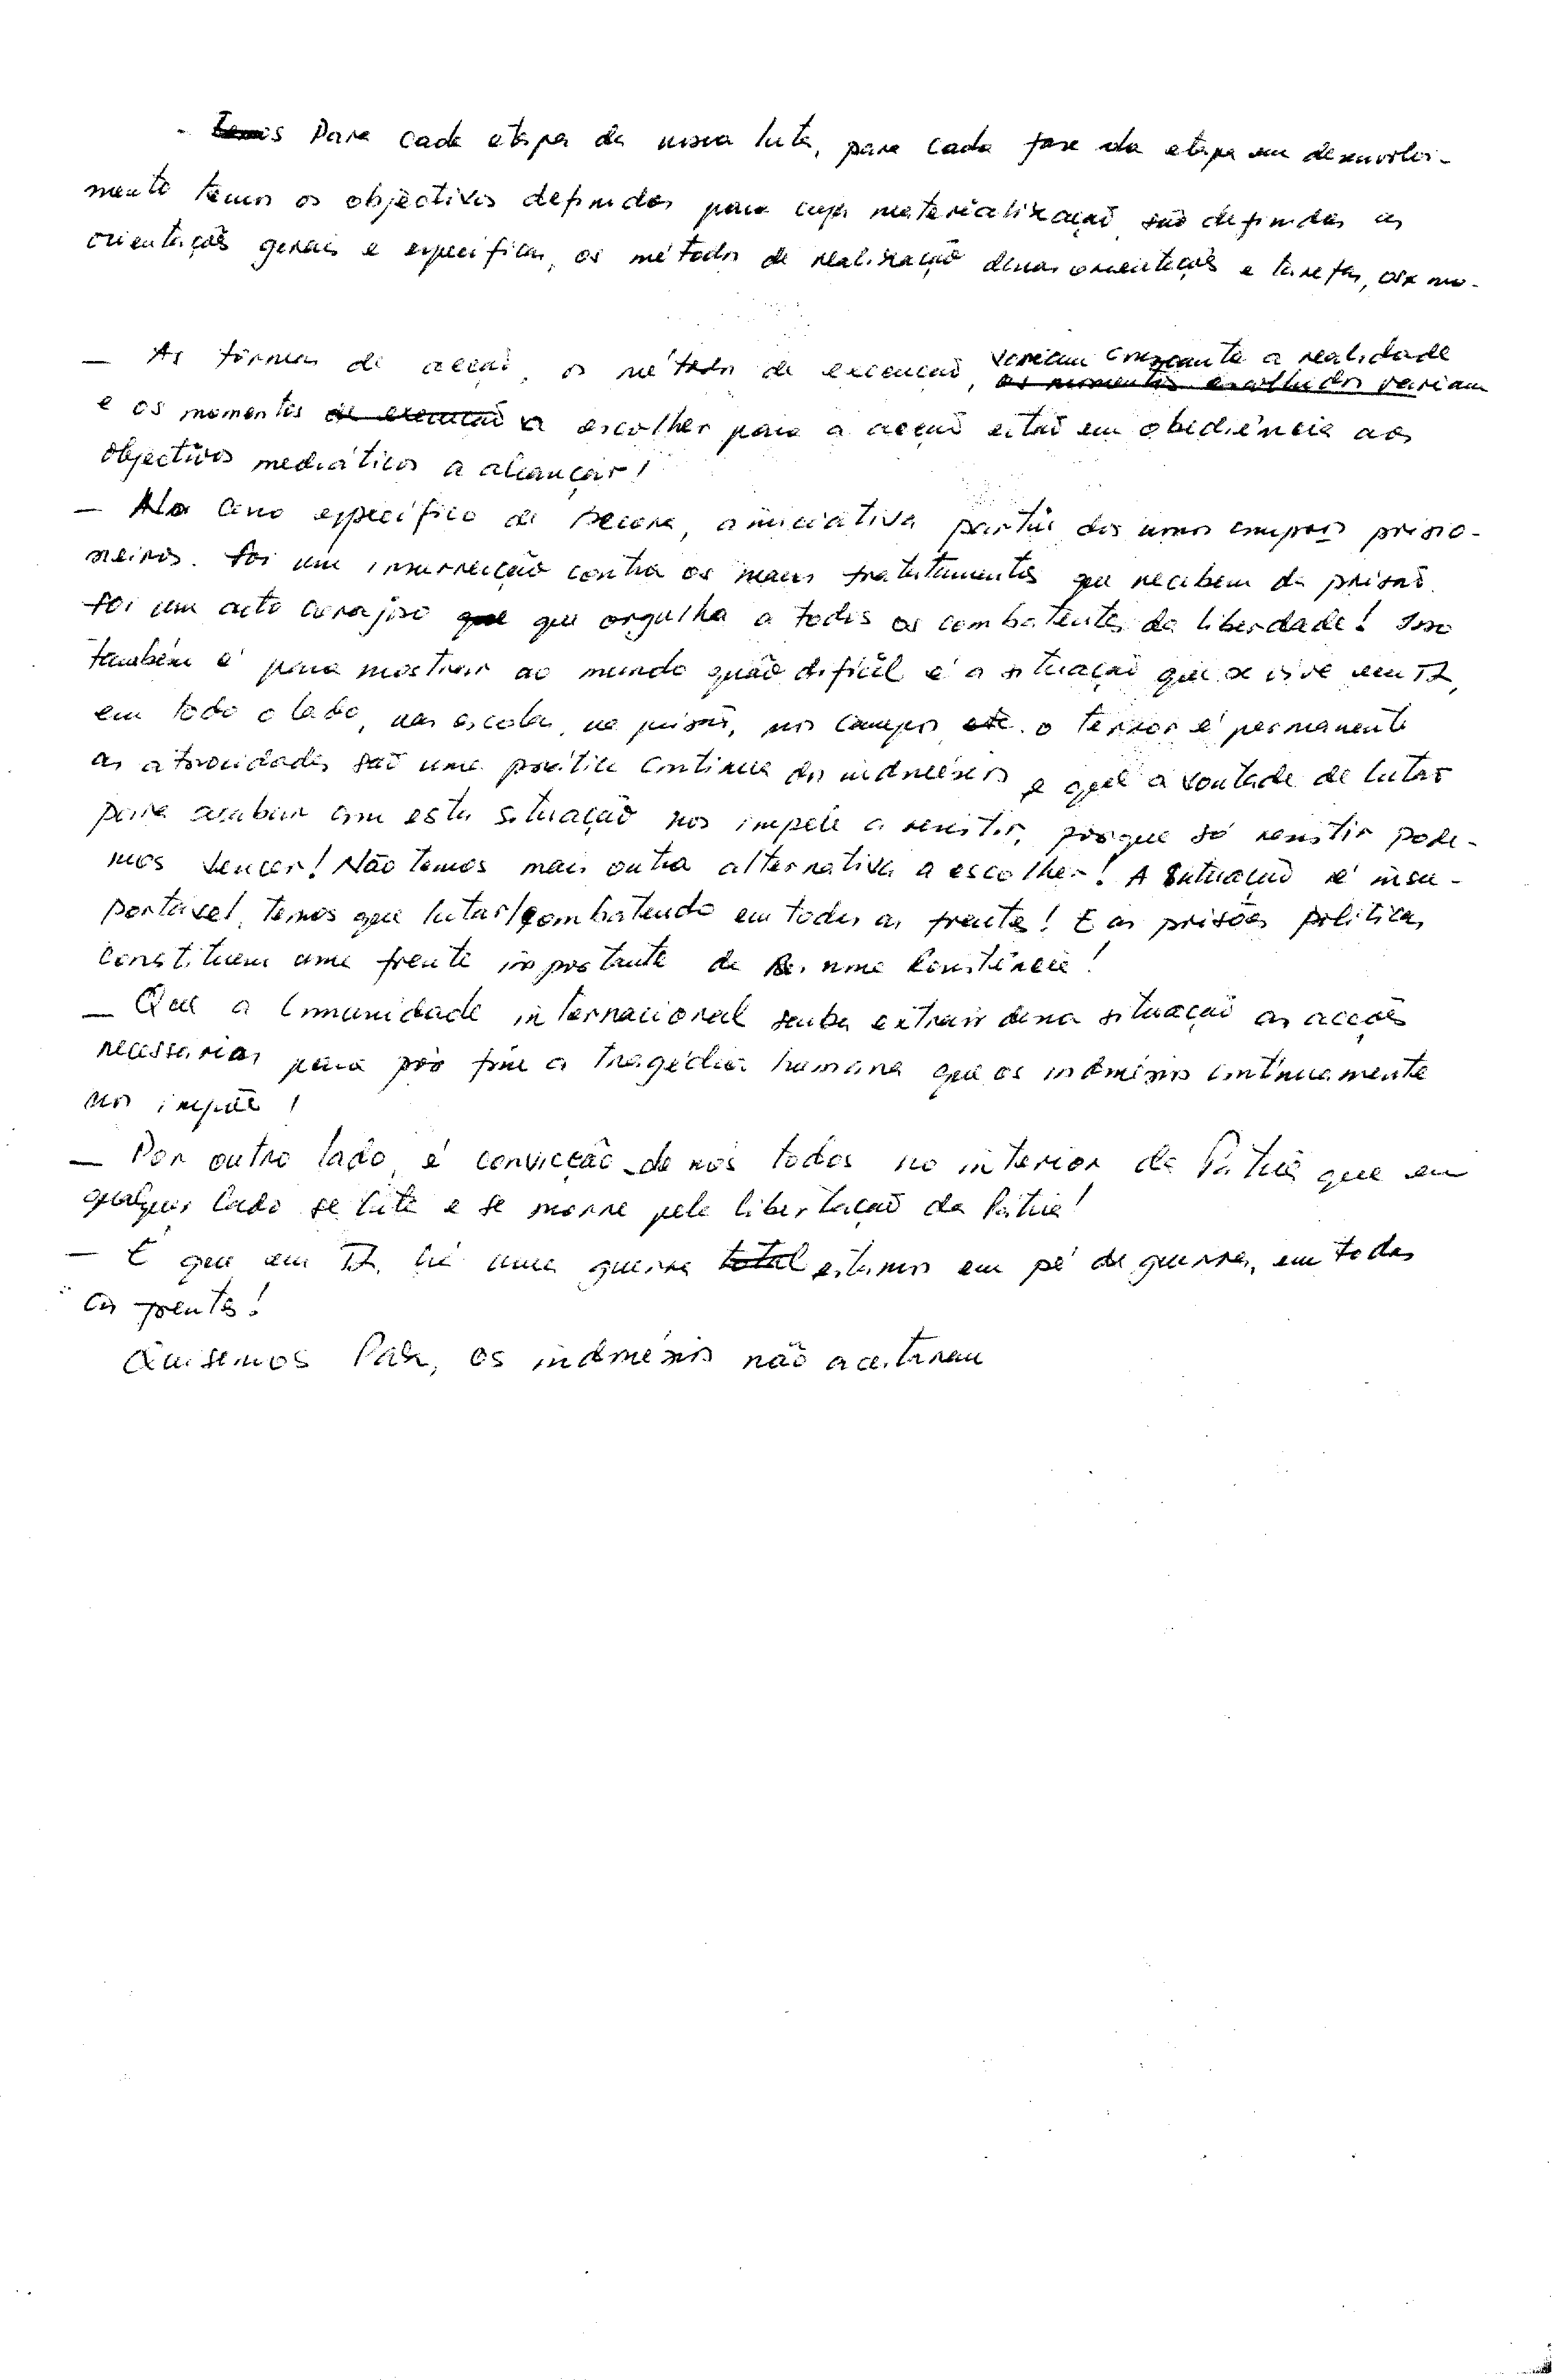 - Para cada etapa da nossa luta, para cada fase da etapa em desenvolvi-
mento temos os objectivos definidos para cuja materialização são definidas as
orientações gerais e específicas, os métodos de realização dessas orientações e tarefas, os mo-
— As formas de acção, os métodos de execução, variam consoante a realidade
os momentos escolhidos variam
e os momentos de execução a escolher para a acção estão em obediência aos
objectivos mediáticos a alcançar!
— No caso específico de Becora, a iniciativa partiu dos nossos compos prisio-
neiros. Foi um insurreição contra os maus tratatamentos que recebem da prisão.
Foi um acto corajoso que que orgulha a todos os combatentes da liberdade! Isso
também é para mostrar ao mundo quão difícil é a situação que se vive em TL,
em todo o lado, nas escolas, na prisão, nos campos etc. o terror é permanente
as atrocidades são uma prática contínua dos indonésios e que a vontade de lutar
para acabar com esta situação nos impele a resistir, porque só resistir pode-
mos vencer! Não temos mais outra alternativa a escolher! A situação é insu-
portável, temos que lutar/combatendo em todas as frentes! E as prisões políticas
constituem uma frente importante da nossa Resistência!
— Que a Comunidade internacional saiba extrair dessa situação as acções
necessárias para pôr fim a tragédia humana que os indonésios continuamente
nos impõe!
— Por outro lado, é convicção de nós todos no interior da Pátria que em
qualquer lado se luta e se morre pela libertação da Pátria!
— É que em TL há uma guerra total estamos em pé de guerra, em todas
as frentes!
Quisemos Paz, os indonésios não aceitaram